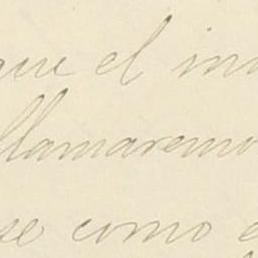 que el in
llamaremo
se como e